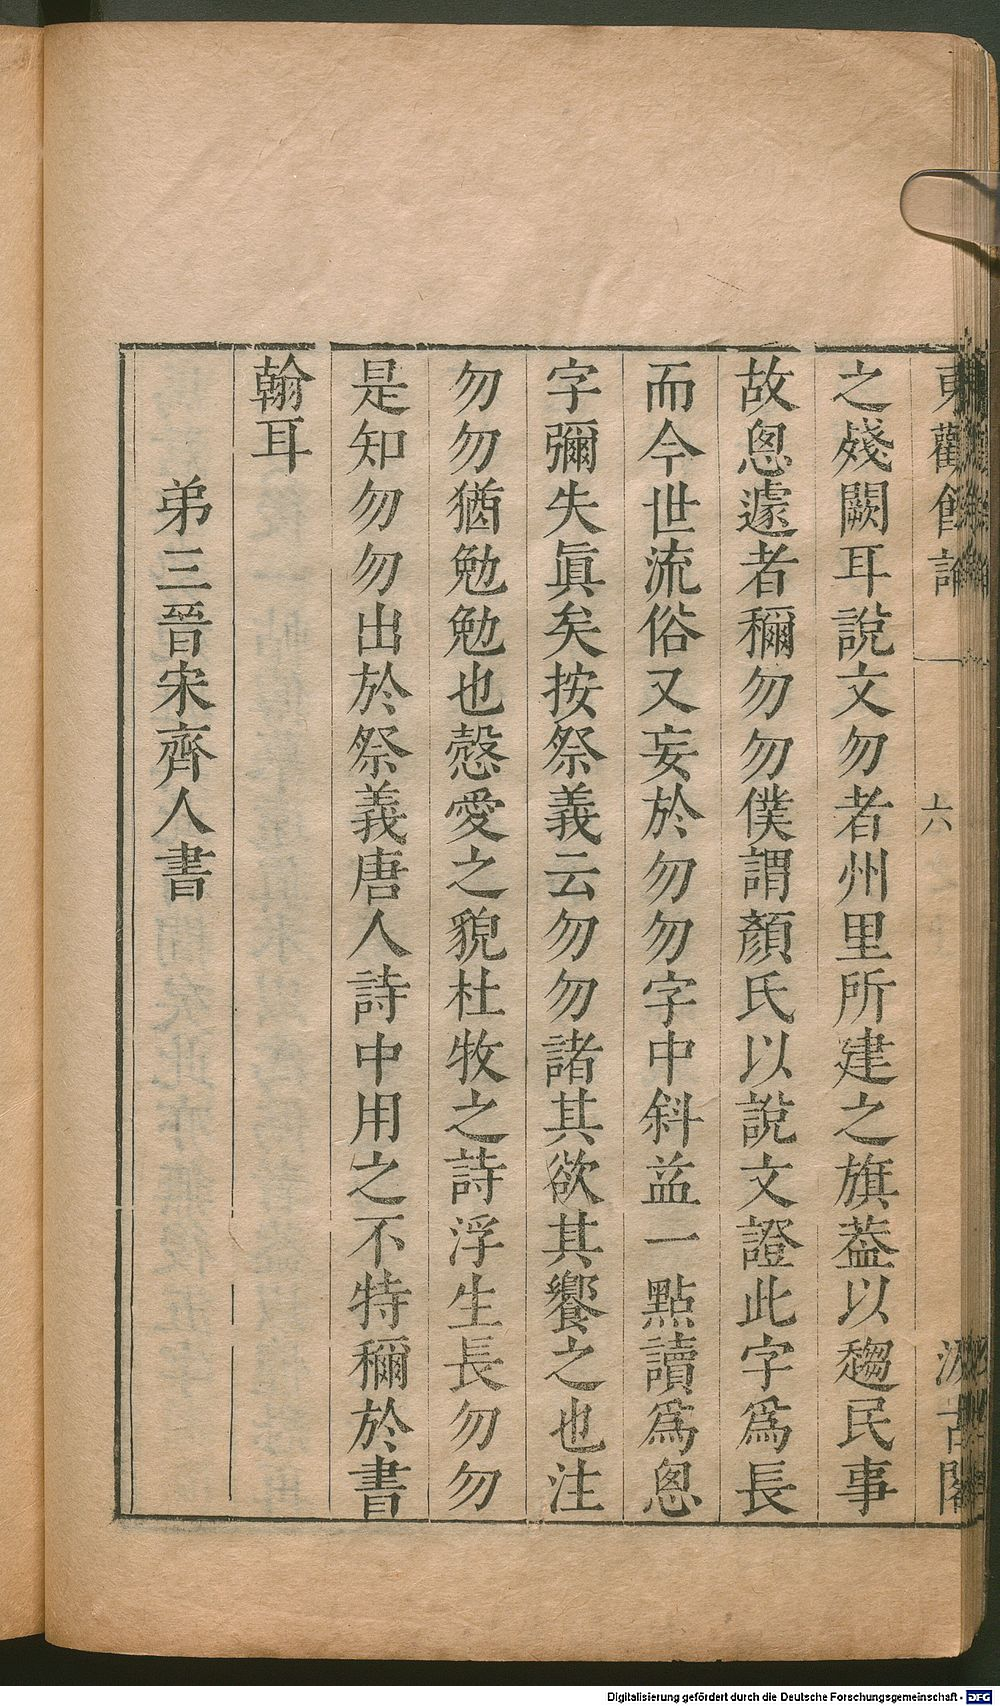 東觀餘論
六
汲古閣
之殘闕耳說文勿者州里所建之旗葢以趨民事
故恖遽者稱勿勿僕謂顏氏以說文證此字爲長
而今世流俗又妄於勿勿字中斜益一點讀爲恖
字彌失眞矣按祭義云勿勿諸其欲其饗之也注
勿勿猶勉勉也慤愛之貌杜牧之詩浮生長勿勿
是知勿勿出於祭義唐人詩中用之不特稱於書
翰耳
弟三晉宋齊人書
Digitalisierung gefördert durch die Deutsche Forschungsgemeinschaft - DFG